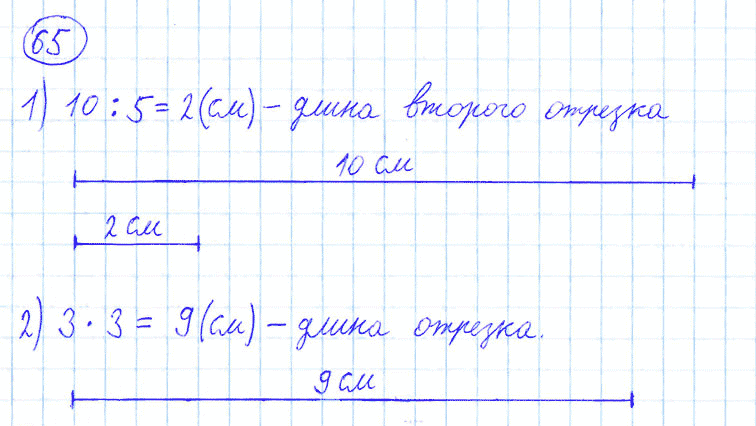 65
1) 10 : 5 = 2 (см) – длина второго отрезка
10 см
2 см
2) 3 · 3 = 9 (см) – длина отрезка.
9 см